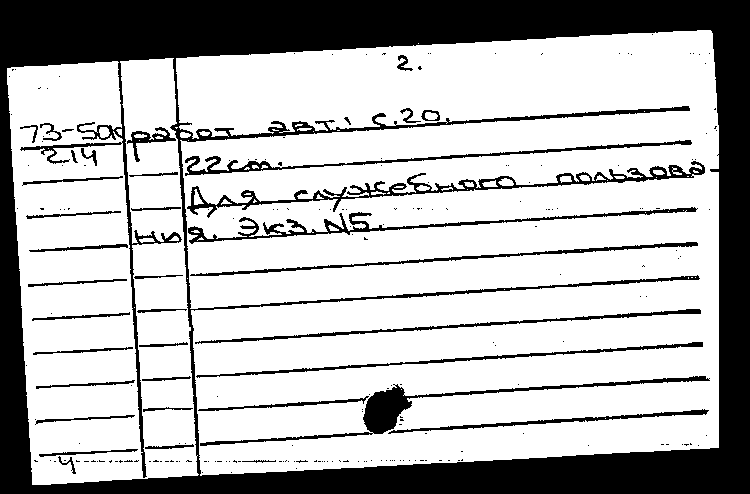 2.
73-50к работ авт.: с.20.
214 22см.
Для служебного пользова-
ния. Экз. N5.
4